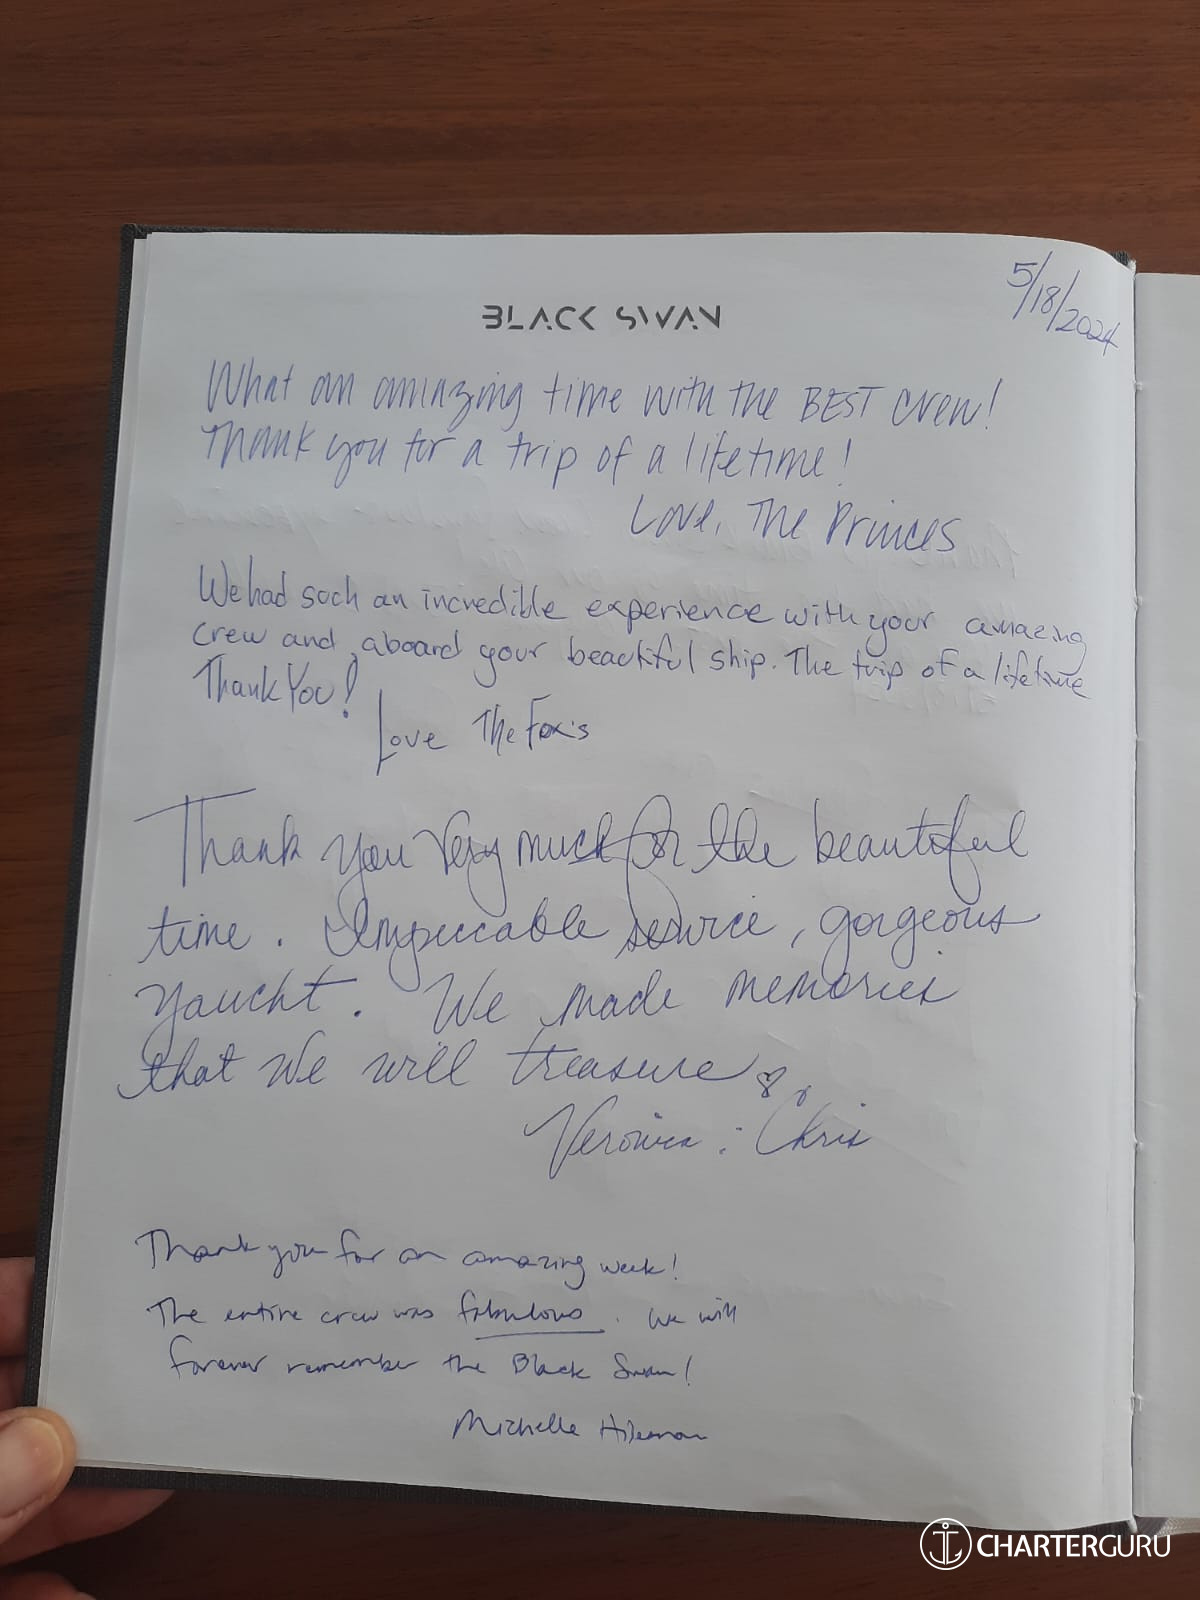 5/18/2024
BLACK SWAN
What an amazing time with the BEST crew!
Thank you for a trip of a lifetime!
Love, The Princes
We had such an incredible experience with your amazing
crew and aboard your beautiful ship. The trip of a lifetime
Thank You!
Love The Fox's
Thank you very much for the beautiful
time. Impeccable service, gorgeous
yaucht. We made memories
that we will treasure
Veronica : Chris
Thank you for an amazing week!
The entire crew was fabulous. We will
forever remember the Black Swan!
Michelle
CHARTERGURU